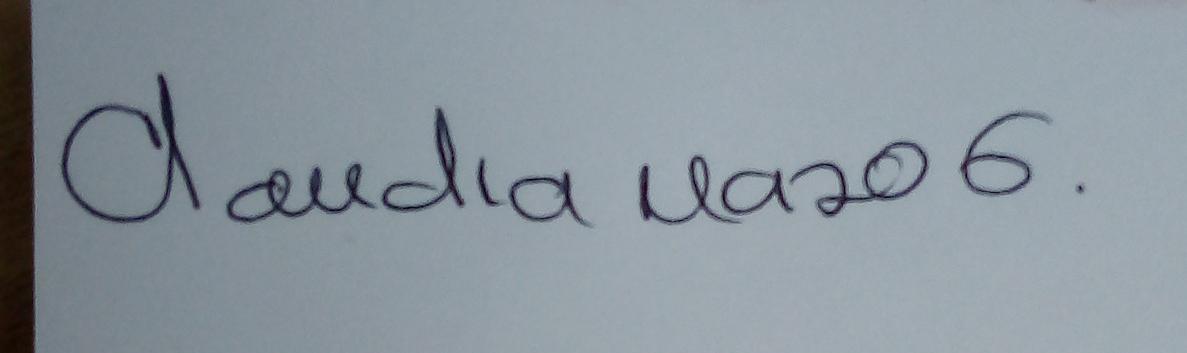 Claudia Mazo G.